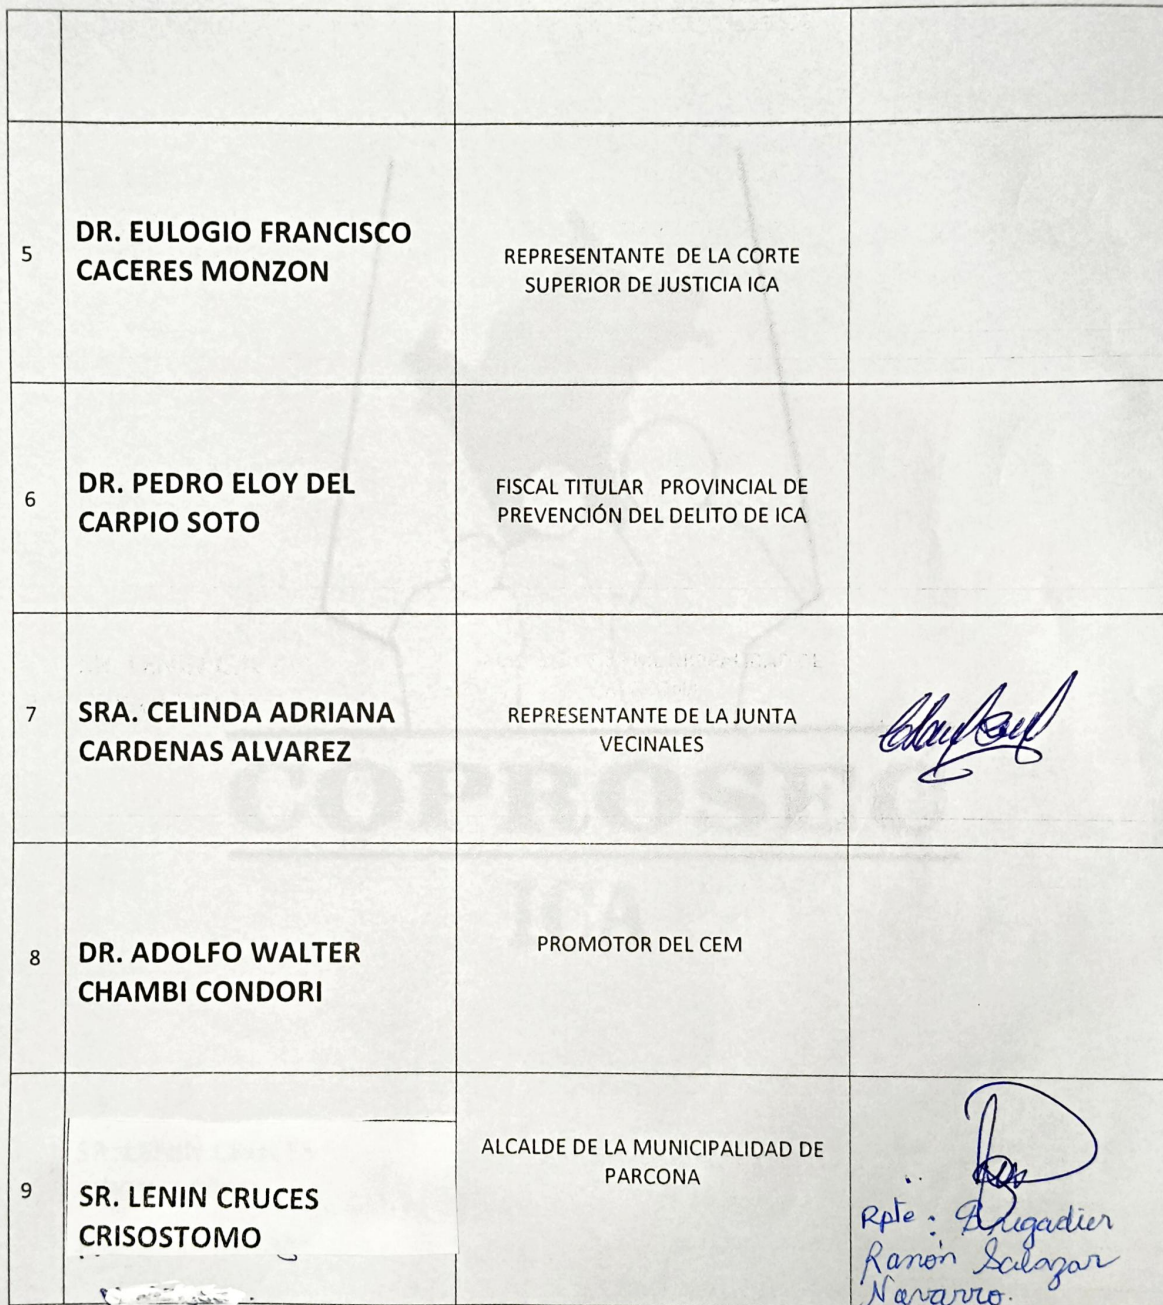 5
DR. EULOGIO FRANCISCO
CACERES MONZON
REPRESENTANTE DE LA CORTE
SUPERIOR DE JUSTICIA ICA
6
DR. PEDRO ELOY DEL
CARPIO SOTO
FISCAL TITULAR PROVINCIAL DE
PREVENCIÓN DEL DELITO DE ICA
7
SRA. CELINDA ADRIANA
CARDENAS ALVAREZ
REPRESENTANTE DE LA JUNTA
VECINALES
COPROSEC
ICA
8
DR. ADOLFO WALTER
CHAMBI CONDORI
PROMOTOR DEL CEM
9
SR. LENIN CRUCES
CRISOSTOMO
ALCALDE DE LA MUNICIPALIDAD DE
PARCONA
Rpte: Brigadier
Ramón Salazar
Navarro.